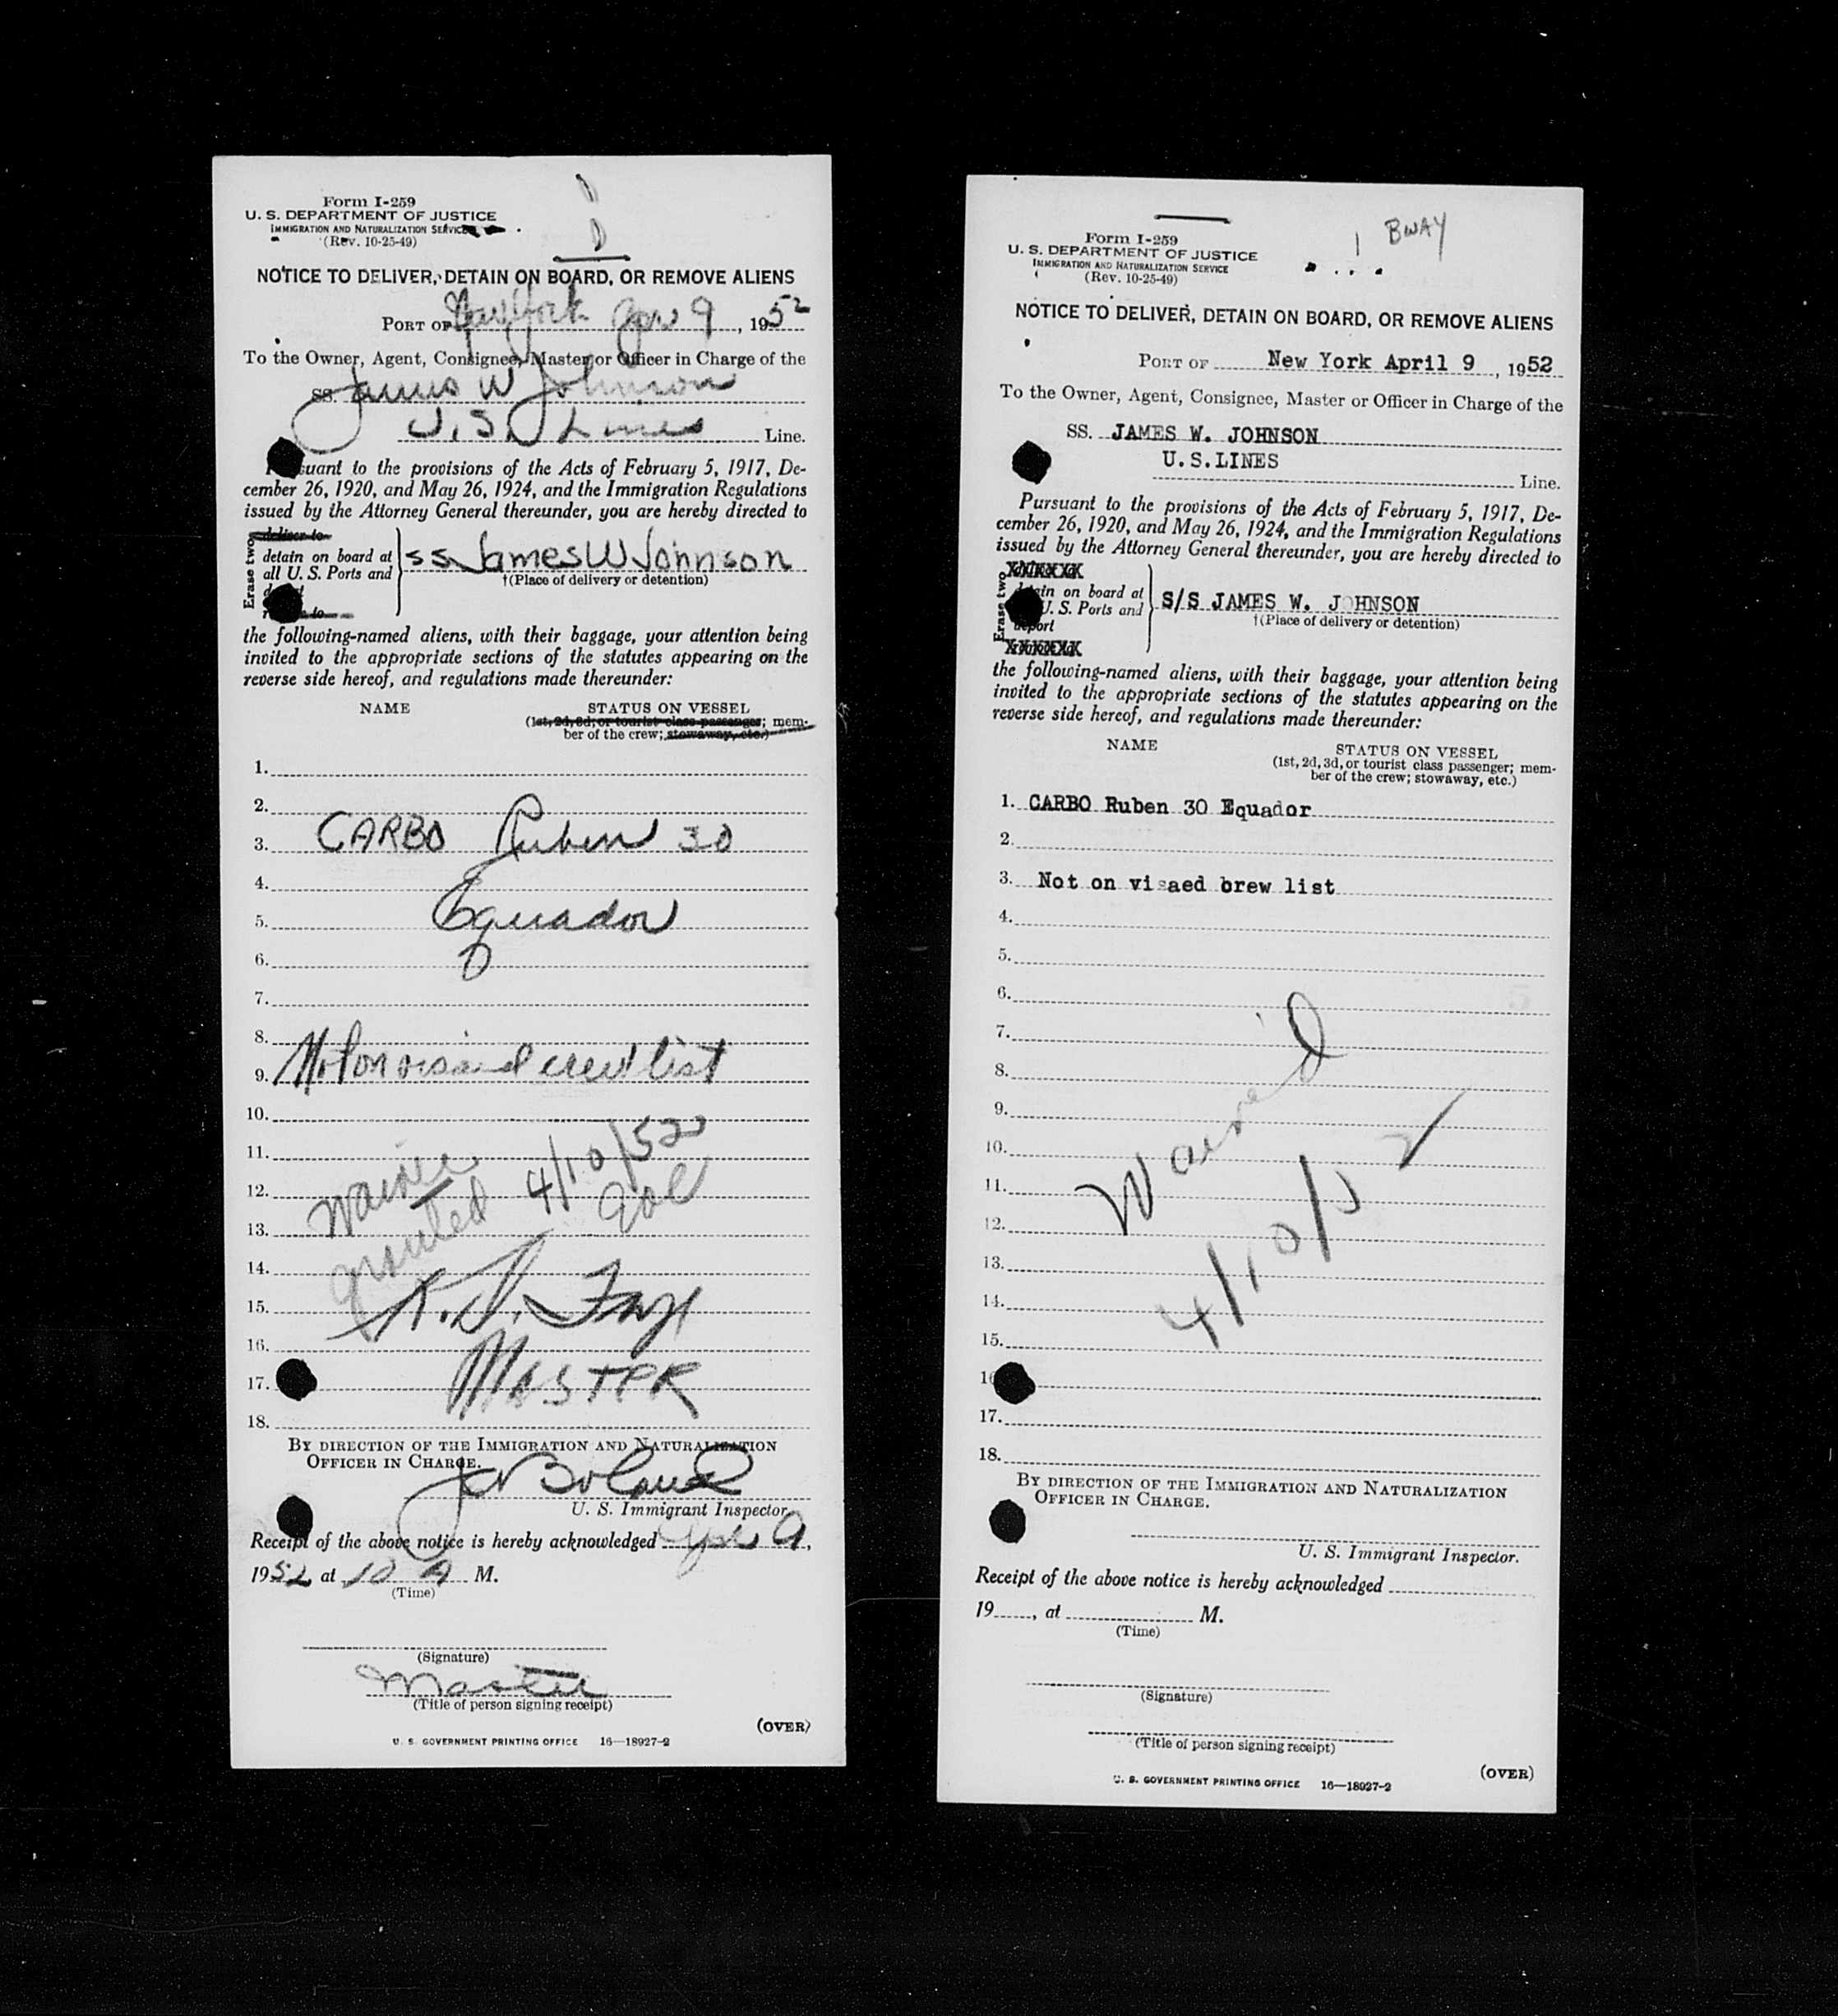 Form I-259
U. S. DEPARTMENT OF JUSTICE
IMMIGRATION AND NATURALIZATION SERVICE
(Rev. 10-25-49)
NOTICE TO DELIVER, DETAIN ON BOARD, OR REMOVE ALIENS
PORT OF New York Apr 9, 1952
To the Owner, Agent, Consignee, Master or Officer in Charge of the
SS. James W Johnson
U.S. Lines Line.
Pursuant to the provisions of the Acts of February 5, 1917, De-
cember 26, 1920, and May 26, 1924, and the Immigration Regulations
issued by the Attorney General thereunder, you are hereby directed to
Erase two
deliver to
detain on board at
all U. S. Ports and
SS James W Johnson
†(Place of delivery or detention)
the following-named aliens, with their baggage, your attention being
invited to the appropriate sections of the statutes appearing on the
reverse side hereof, and regulations made thereunder:
NAME STATUS ON VESSEL
(1st, 2d, 3d, or tourist class passenger; mem-
ber of the crew; stowaway, etc.)
1.
2.
3. CARBO Ruben 30
4.
5. Equador
6.
7.
8.
9. Not on visaed crew list
10.
11.
12. Waiver 4/10/52
13. granted
14.
15. K. J. Fay
16.
17. MASTER
18.
BY DIRECTION OF THE IMMIGRATION AND NATURALIZATION
OFFICER IN CHARGE.
U. S. Immigrant Inspector.
Receipt of the above notice is hereby acknowledged Apr 9,
1952 at 10 A M.
(Time)
(Signature)
Master
(Title of person signing receipt)
(OVER)
U. S. GOVERNMENT PRINTING OFFICE 16—18927-2
BWAY
Form I-259
U. S. DEPARTMENT OF JUSTICE
IMMIGRATION AND NATURALIZATION SERVICE
(Rev. 10-25-49)
NOTICE TO DELIVER, DETAIN ON BOARD, OR REMOVE ALIENS
PORT OF New York April 9, 1952
To the Owner, Agent, Consignee, Master or Officer in Charge of the
SS. JAMES W. JOHNSON
U.S.LINES
Line.
Pursuant to the provisions of the Acts of February 5, 1917, De-
cember 26, 1920, and May 26, 1924, and the Immigration Regulations
issued by the Attorney General thereunder, you are hereby directed to
Erase two
XXXXXX
detain on board at
U. S. Ports and
deport
XXXXXX
S/S JAMES W. JOHNSON
†(Place of delivery or detention)
the following-named aliens, with their baggage, your attention being
invited to the appropriate sections of the statutes appearing on the
reverse side hereof, and regulations made thereunder:
NAME STATUS ON VESSEL
(1st, 2d, 3d, or tourist class passenger; mem-
ber of the crew; stowaway, etc.)
1. CARBO Ruben 30 Equador
2.
3. Not on visaed brew list
4.
5.
6.
7.
8.
9.
10.
11. Waived
12.
13. 4/10/52
14.
15.
16
17.
18.
BY DIRECTION OF THE IMMIGRATION AND NATURALIZATION
OFFICER IN CHARGE.
U. S. Immigrant Inspector.
Receipt of the above notice is hereby acknowledged
19, at M.
(Time)
(Signature)
(Title of person signing receipt)
(OVER)
U. S. GOVERNMENT PRINTING OFFICE 16—18927-2